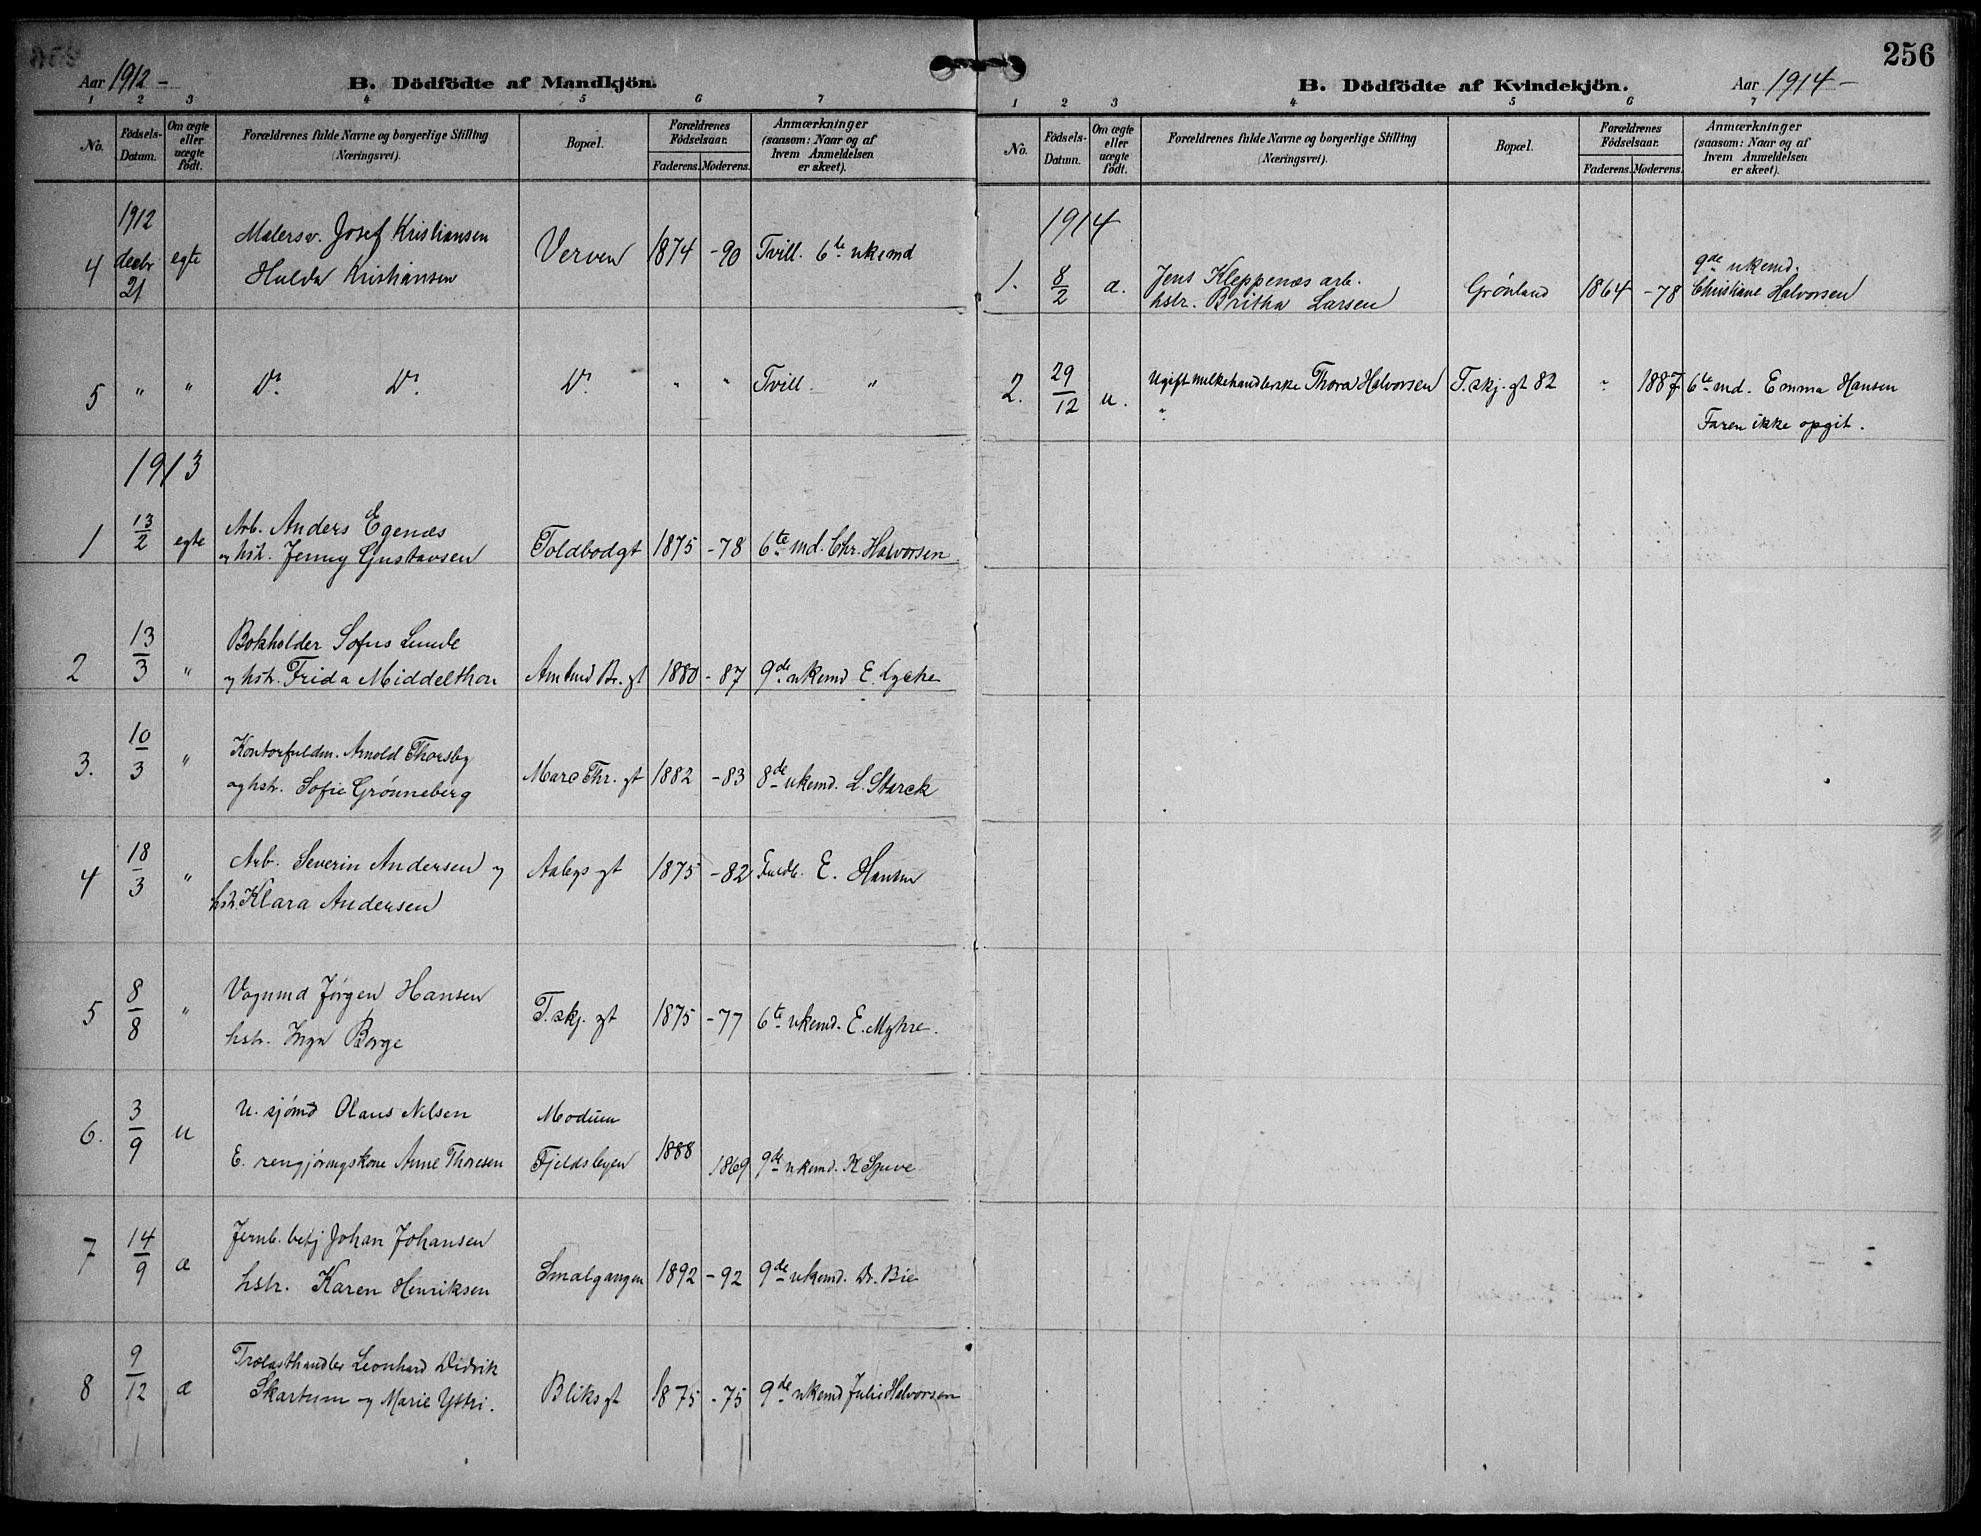 Aar 1912 -
B. Dödfödte af Mandkjön.
1 2 3 4 5 6 7
No.
Födsels-Datum.
Om ægte eller uægte födt.
Forældrenes fulde Navne og borgerlige Stilling
(Næringsvei).
Bopæl.
Forældrenes Födselsaar.
Faderens. Moderens.
Anmærkninger
(saasom: Naar og af
hvem Anmeldelsen
er skeet).
1912
4 decbr 21 egte Malersv. Josef Kristiansen
Hulda Kristiansen
Verven 1874 -90 Tvill. 6te ukemd
5 " " Do Do Do " " Tvill. "
1913
1 13/2 egte Arb. Anders Egenæs
og hstr. Jenny Gustavsen
Toldbodgt 1875 -78 6te md. Chr. Halvorsen
2 13/3 " Bokholder Sofus Lunde
og hstr. Frida Middelthon
Amtmd Br. gt 1880 -87 9de ukemd E. Lyche
3. 10/3 " Kontorfuldm. Arnold Thorsby
og hstr. Sofie Grønneberg
Marc Thr. gt 1882 -83 8de ukemd. L. Starck
4 18/3 " Arb. Severin Andersen og
hstr. Klara Andersen
Aabys gt 1875 -82 Fuldb. E. Hansen
5 8/8 " Vognmd Jørgen Hansen
hstr. Inga Borge
T. skj. gt 1875 -77 6te ukemd. E. Myhre.
6. 3/9 u U. sjømd Olaus Nilsen
Modum
E. rengjøringskone Anne Thoresen
Fjeldsbyen 1888 1869 9de ukemd. K
7 14/9 æ Jernb. betj Johan Johansen
hstr. Karen Henriksen
Smalgangen 1892 -92 9de ukemd. Dr. Bie
8 9/12 æ Trælasthandler Leonhard Didrik
Skartum og Marie Yttri.
Bliks gt 1875 -75 9de ukemd Julie Halvorsen
256
B. Dödfödte af Kvindekjön.
Aar 1914 -
1 2 3 4 5 6 7
No.
Födsels-Datum.
Om ægte eller uægte födt.
Forældrenes fulde Navne og borgerlige Stilling
(Næringsvei).
Bopæl.
Forældrenes Födselsaar.
Faderens. Moderens.
Anmærkninger
(saasom: Naar og af
hvem Anmeldelsen
er skeet).
1914
1. 8/2 æ. Jens Kleppenæs arb.
hstr. Britha Larsen
Grønland 1864 -78 9de ukemd.
Christiane Halvorsen
2. 29/12 u. Ugift melkehandlerske Thora Halvorsen T. skj. gt 82 " 1887 6te md. Emma Hansen
"
Faren ikke opgit.